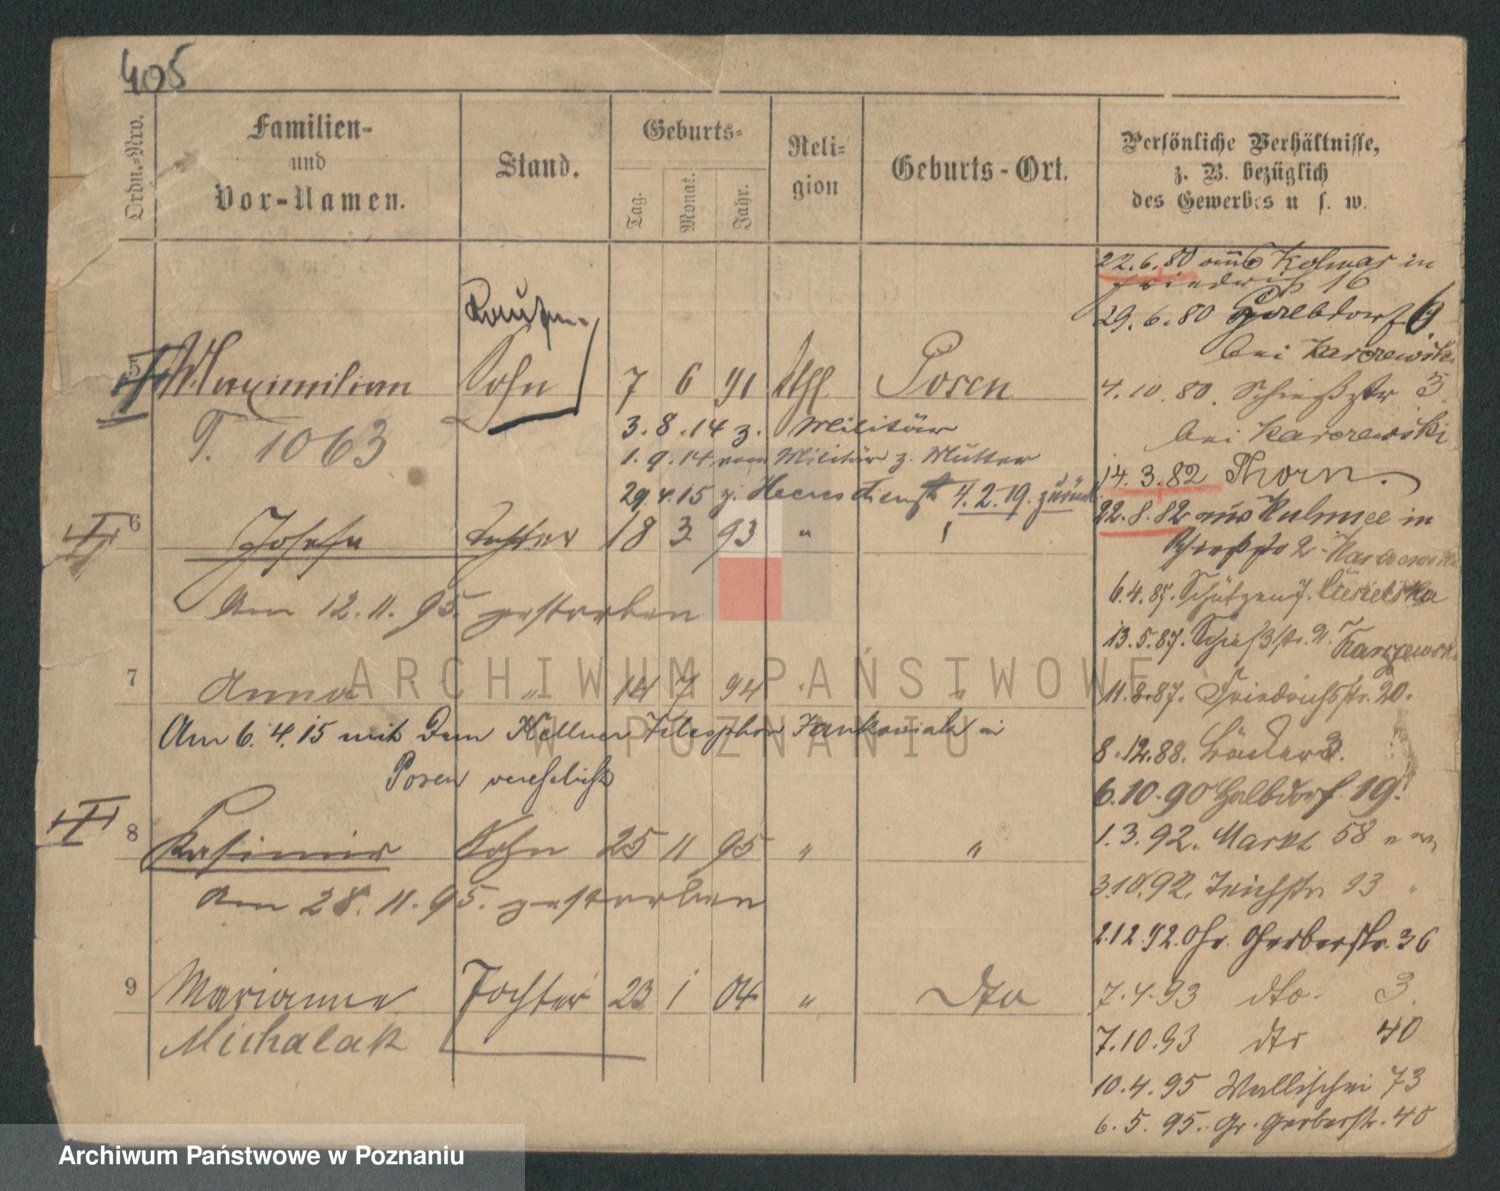 405
Ordn.-Nro.
Familien-
und
Vor-Namen.
Stand.
Geburts-
Tag.
Monat.
Jahr.
Reli-
gion
Geburts-Ort.
Persönliche Verhältnisse,
z. B. bezüglich
des Gewerbes u. s. w.
5 Maximilian Sohn 7 6 91 Posen
T. 1063
3.8.14 z. Militär
1.9.14 vom Militär z. Mutter
29.4.15 z. Heeresdienst 4.2.19. zurück
6 Josefa Tochter 18 3 93 "
Am 12.11.95. gestorben
7 Anna " 14 7 94 " "
Am 6.4.15 mit dem Kellner Telesphor Jankowiak in
Posen verehelicht
8 Kasimir Sohn 25 11 95 " "
Am 28.11.95. gestorben
9 Marianne Tochter 23 1 04 " dto
Michalak
22.6.80 aus Kolmar in
Friedrich 16
29.6.80 Halbdorf 9
bei Karczewski
4.10.80. Schießstr 3
bei Karczewski
14.3.82 Thorn.
22.8.82 aus Kulmsee in
Schießstr 2
6.4.85. Schützenstr.
13.5.87. Schießstr. 2.
11.8.87. Friedrichsstr. 20.
8.12.88. Bäcker 3.
6.10.90 Halbdorf. 19.
1.3.92. Markt 58
3.10.92. Teichstr. 13
2.12.92. Gr. Gerberstr. 36
7.4.93 dto. 3.
7.10.93 dto 40
10.4.95 Wallischei 73
6.5.95. Gr. Gerberstr. 40
ARCHIWUM PAŃSTWOWE
W POZNANIU
Archiwum Państwowe w Poznaniu